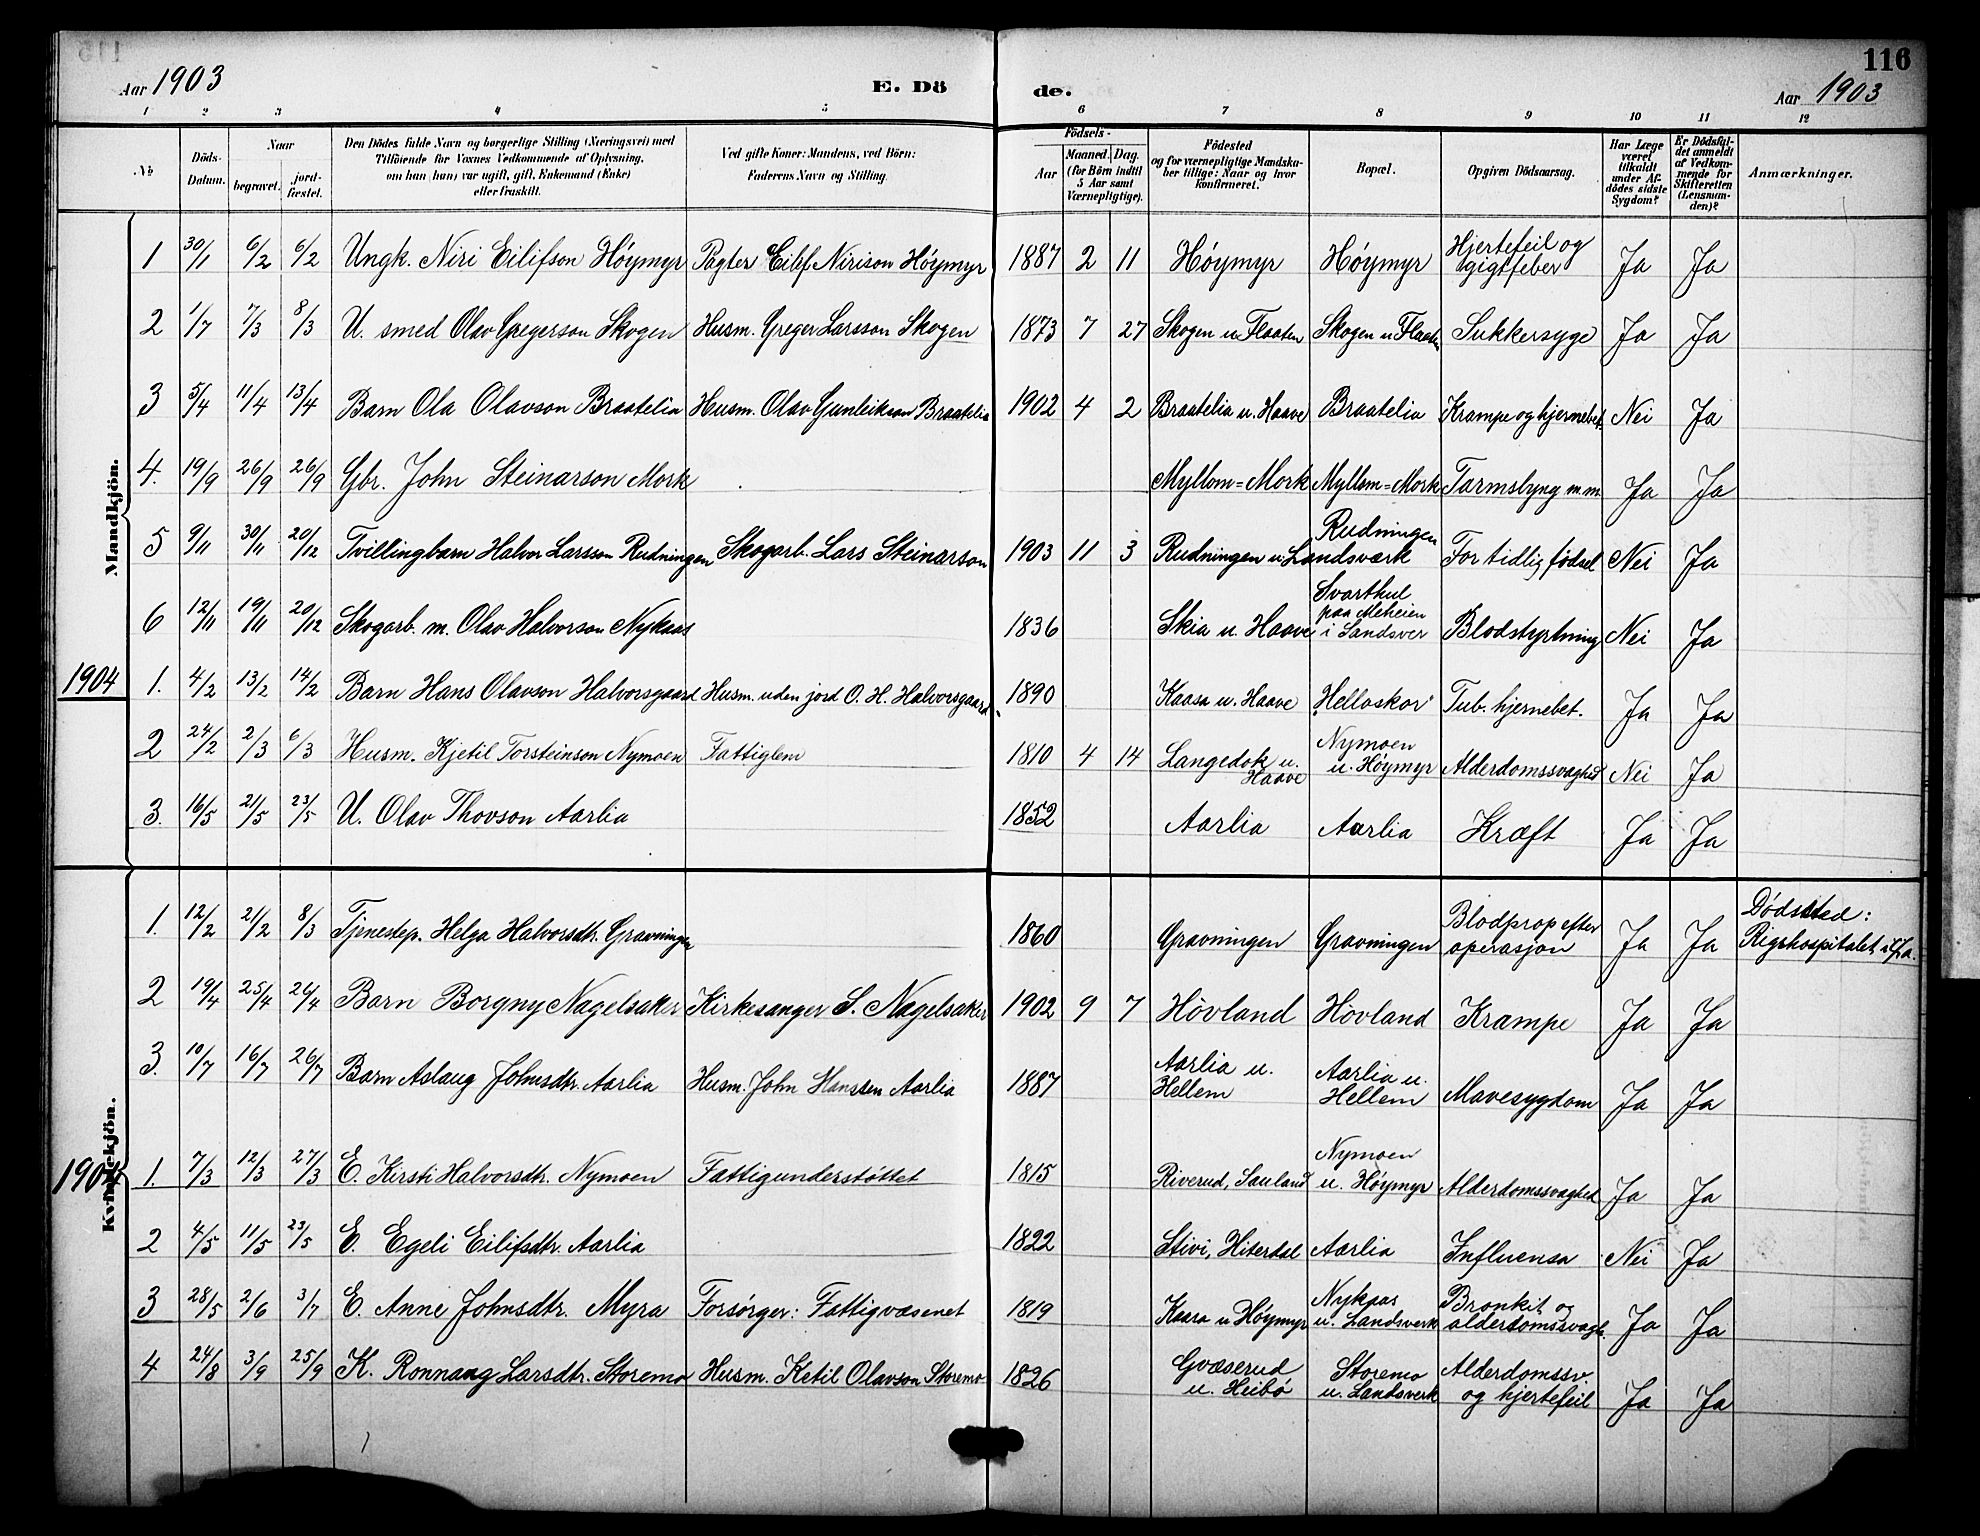 116
Aar 1903
E. Dö
de.
Aar 1903
1 2 3 4 5 6 7 8 9 10 11 12
No
Döds-Datum.
Naar
begravet.
jord-fæstet.
Den Dödes fulde Navn og borgerlige Stilling (Næringsvei) med
Tilföiende for Voxnes Vedkommende af Oplysning,
om han (hun) var ugift, gift, Enkemand (Enke)
eller fraskilt.
Ved gifte Koner: Mandens, ved Börn:
Faderens Navn og Stilling.
Födsels-
Aar
Maaned. Dag.
(for Börn indtil
5 Aar samt
Værnepligtige).
Födested
og for værnepligtige Mandska-
ber tillige: Naar og hvor
konfirmeret.
Bopæl.
Opgiven Dödsaarsag.
Har Læge
været
tilkaldt
under Af-
dödes sidste
Sygdom?
Er Dödsfal-
det anmeldt
af Vedkom-
mende for
Skifteretten
(Lensman-
den)?
Anmærkninger.
Mandkjön.
1 30/1 6/2 6/2 Ungk. Niri Eilifson Höymyr Pagter Eilif Nirison Höymyr 1887 2 11 Höymyr Höymyr Hjertefeil og gigtfeber Ja Ja
2 1/7 7/3 8/3 U. smed Olav Gregerson Skogen Husm. Greger Larsson Skogen 1873 7 27 Skogen u. Flaaten Skogen u. Flaaten Sukkersyge Ja Ja
3 5/4 11/4 13/4 Barn Ola Olavson Braatelia Husm. Olav Gunleikson Braatelia 1902 4 2 Braatelia u. Haave Braatelia Krampe og hjernebet. Nei Ja
4. 19/9 26/9 26/9 Gbr. John Steinarson Mork Myllom=Mork Myllom=Mork Tarmslyng m.m. Ja Ja
5 9/11 30/11 20/12 Tvillingbarn Halvor Larsson Rudningen Skogarb. Lars Steinarson 1903 11 3 Rudningen u. Landsværk Rudningen For tidlig födsel Nei Ja
6 12/11 19/11 20/12 Skogarb. m. Olav Halvorson Nykaas 1836 Skia u. Haave Svarthul paa Meheien i Sandsver Blodstyrtning Nei Ja
1904 1. 4/2 13/2 14/2 Barn Hans Olavson Halvorsgaard Husm. uden jord O. H. Halvorsgaard 1890 Kaasa u. Haave Helloskor Tub. hjernebet. Ja Ja
2 24/2 2/3 6/3 Husm. Kjetil Torsteinson Nymoen Fattiglem 1810 4 14 Langedok u. Haave Nymoen u. Höymyr Alderdomssvaghed Nei Ja
3. 16/5 21/5 23/5 U. Olav Thovson Aarlia 1852 Aarlia Aarlia Kræft Ja Ja
Kvindekjön.
1. 12/2 21/2 8/3 Tjenestep. Helga Halvorsdtr. Gravningen 1860 Gravningen Gravningen Blodprop efter operasjon Ja Ja Dödssted: Rigshospitalet i Kra.
2 19/4 25/4 26/4 Barn Borgny Nagelsaker Kirkesanger S. Nagelsaker 1902 9 7 Hövland Hövland Krampe Ja Ja
3. 10/7 16/7 26/7 Barn Aslaug Johnsdtr. Aarlia Husm. John Hanssen Aarlia 1887 Aarlia u. Hellem Aarlia u. Hellem Mavesygdom Ja Ja
1904 1. 7/3 12/3 27/3 E. Kirsti Halvorsdtr. Nymoen Fattigunderstöttet 1815 Riverud, Sauland Nymoen u. Höymyr Alderdomssvaghed Ja Ja
2 4/5 11/5 23/5 E. Egeli Eilifsdtr. Aarlia 1822 Stivi, Hiterdal Aarlia Influensa Nei Ja
3 28/5 2/6 3/7 E. Anne Johnsdtr. Myra Forsörger: Fattigvæsenet 1819 Kaasa u Höymyr Nykaas u. Landsverk Bronkit og alderdomssvagh. Ja Ja
4 24/8 3/9 25/9 K. Ronnaug Larsdtr. Storemo Husm. Ketil Olavson Storemo 1826 Gvæserud u. Heibö Storemo u. Landsverk Alderdomssv. og hjertefeil Ja Ja